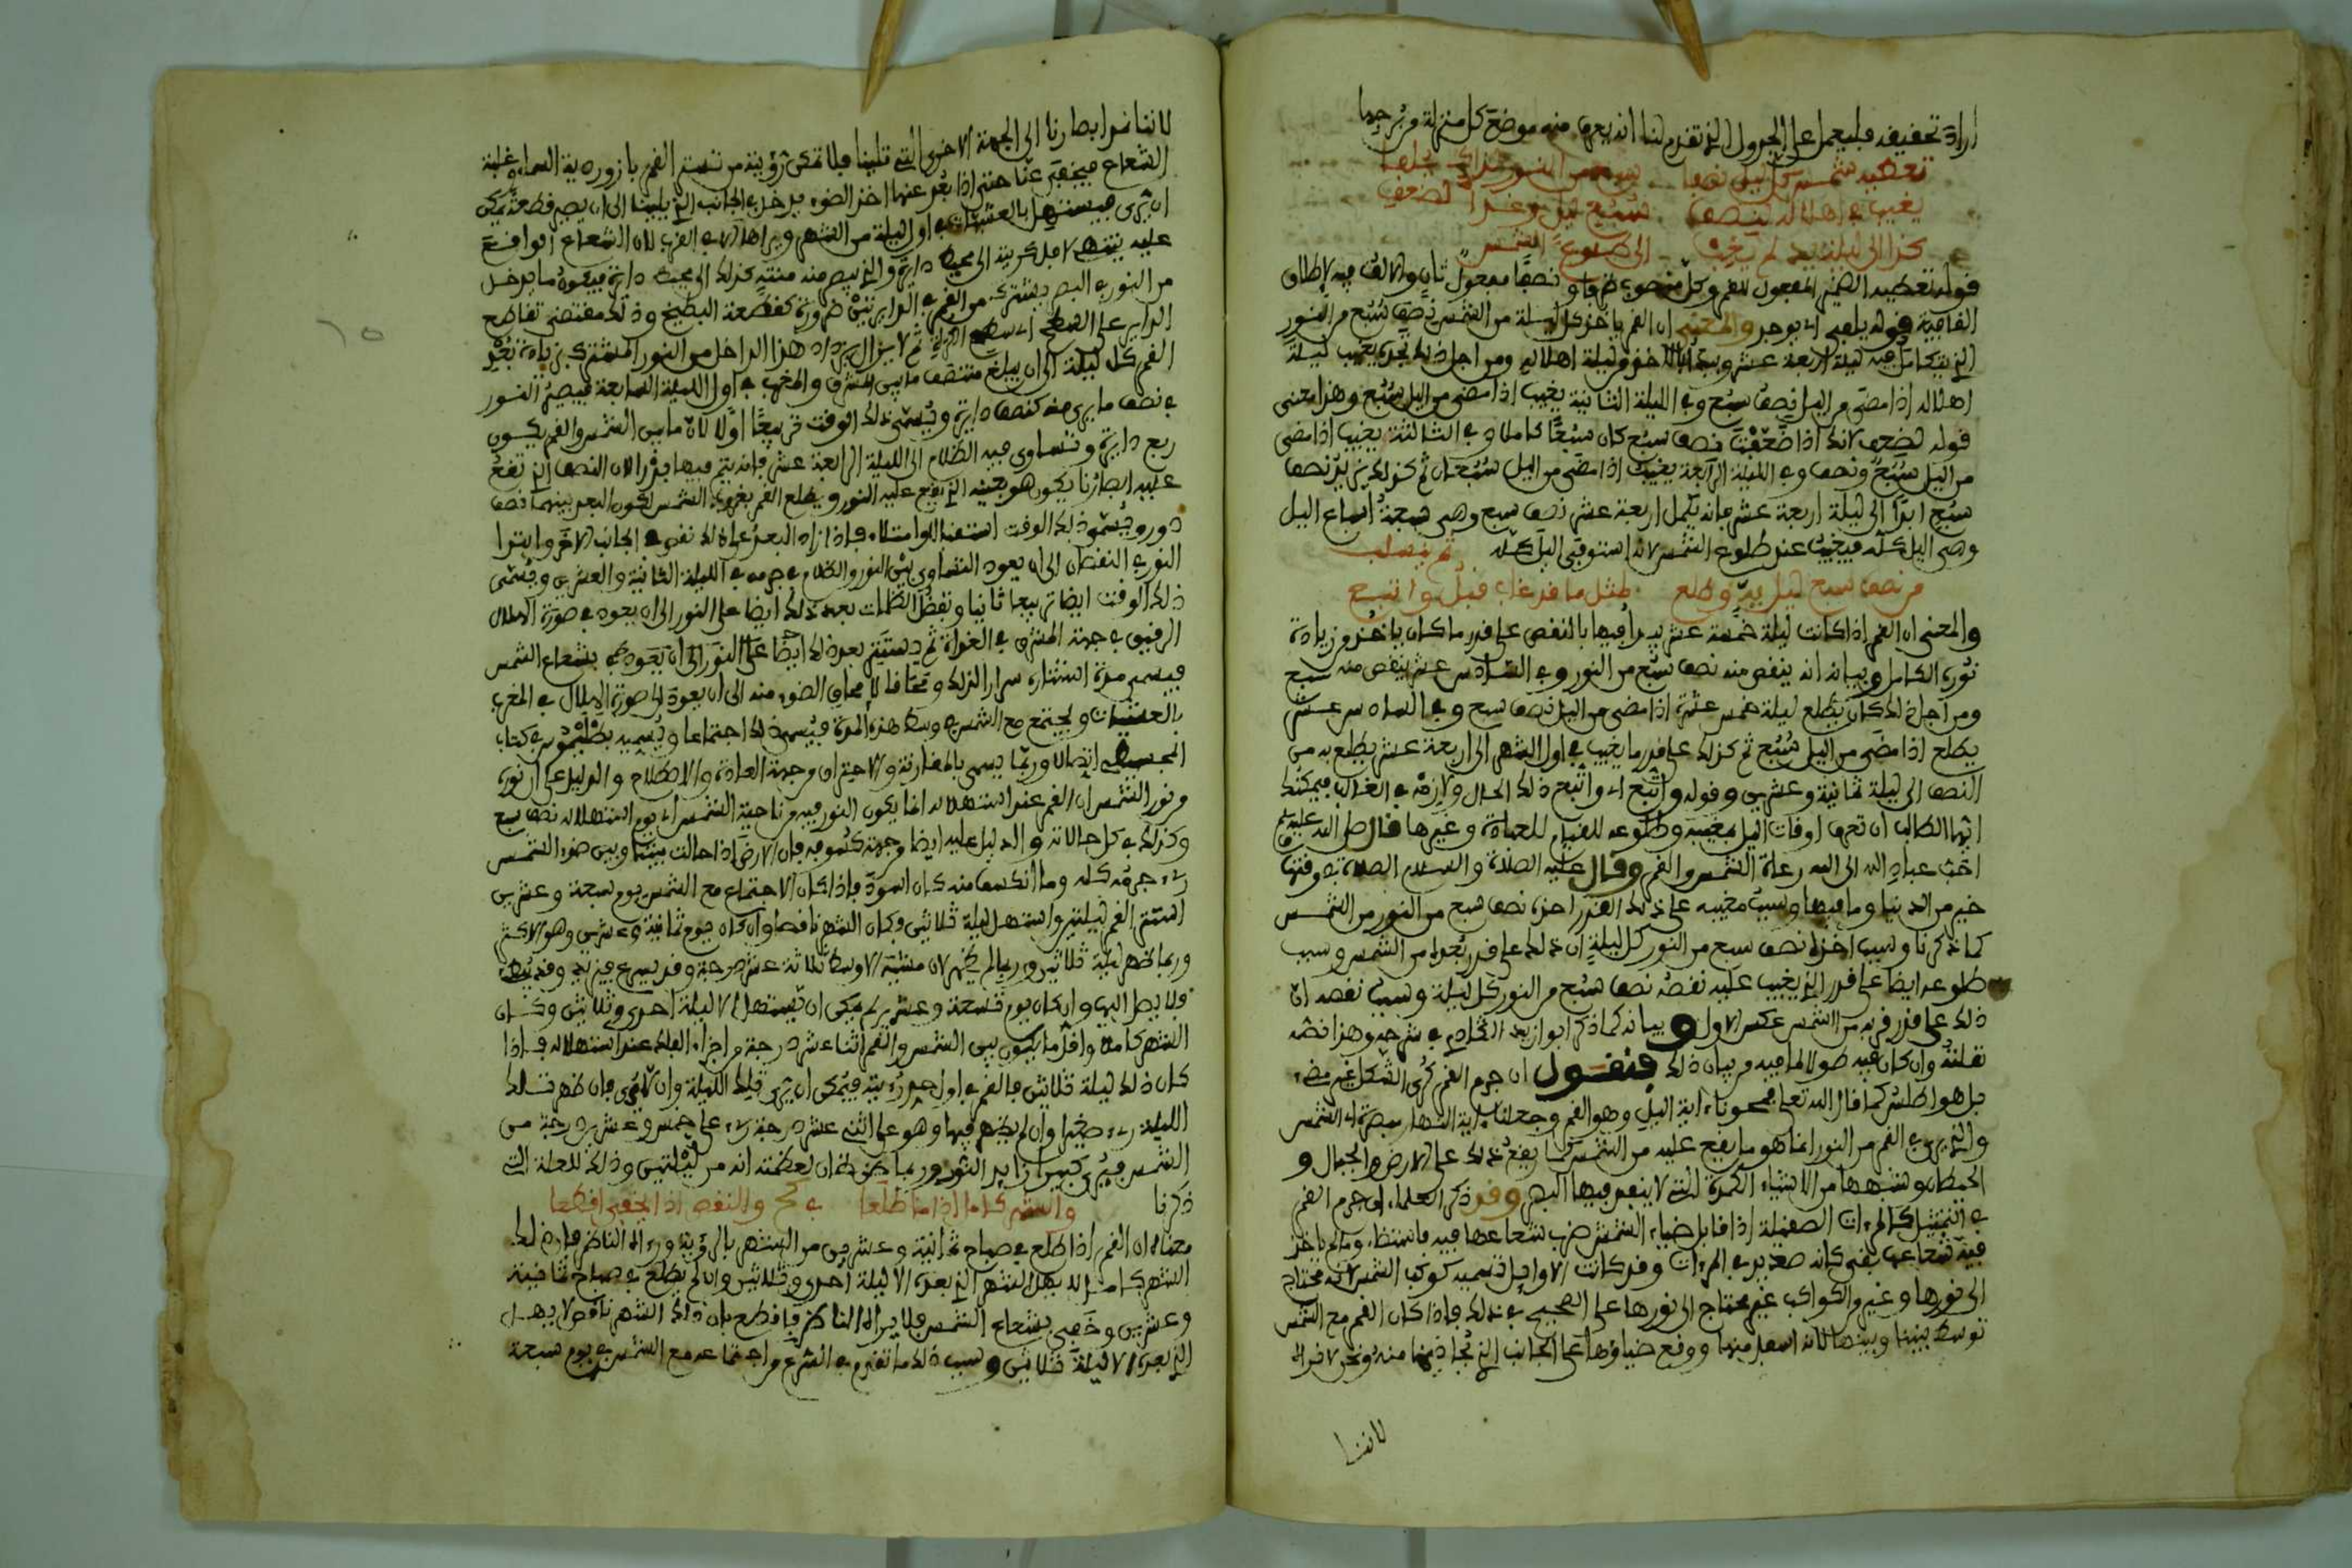 اراد تحقيقه فليعمل على الجدول الذي تقدم لنا انه يعرف منه موضع كل منزلة من برجها
تعطيه شمس كل ليل نصفا سبع من النور فذاك يلفا
يغيب في اهلاله لنصف سبع ليل وغدا لضعف
كذا الى ليلة يد لم يغب الى طلوع الشمس
قوله تعطيه الضمير المفعول للقمر وكل منصوب ظرفا ونصفا مفعول ثان والالف فيه لاطلاق
القافية قوله يلفى اي يوجد والمعنى ان القمر ياخذ كل ليلة من الشمس نصف سبع من النور
الذي يتكامل فيه ليلة الاربعة عشر ويبتدا الاخذ من ليلة اهلاله ومن اجل ذلك تجده يغيب ليلة
اهلاله اذا مضى من اليل نصف سبع وفي الليلة الثانية يغيب اذا مضى من اليل سبع وهذا معنى
قوله لضعف لانك اذا ضعفت نصف سبع كان سبعا كاملا وفي الثالثة يغيب اذا مضى
من اليل سبع ونصف وفي الليلة الرابعة يغيب اذا مضى من اليل سبعان ثم كذلك يزيد نصف
سبع ابدا الى ليلة اربعة عشر فانه يكمل اربعة عشر نصف سبع وهي سبعة اسباع اليل
وهي اليل كله فيغيب عند طلوع الشمس لانه استوفى اليل كله ثم يسلب
من نصف سبع ليل يه وطلع لمثل ما قد غاب قبل واتبع
والمعنى ان القمر اذا كانت ليلة خمسة عشر يبدا فيها بالنقص على قدر ما كان ياخذ من زيادة
نوره الكامل وبيانه انه ينقص منه نصف سبع من النور وفي السادس عشر ينقص منه سبع
ومن اجل ذلك كان يطلع ليلة خمس عشرة اذا مضى من اليل نصف سبع وفي السادس عشر
يطلع اذا مضى من اليل سبع ثم كذلك على قدر ما يغيب في اول الشهر الى اربعة عشر يطلع به من
النصف الى ليلة ثمانية وعشرين وقوله واتبع اي واتبع ذلك الحال ولازمه في الغالب فيمكنك
ايها الطالب ان تعرف اوقات اليل بمغيبه وطلوعه للقيام للصلاة وغيرها قال صلى الله عليه وسلم
احب عباد الله الى الله رعاة الشمس والقمر وقال عليه الصلاة والسلام الصلاة في وقتها
خير من الدنيا وما فيها وسبب مغيبه على ذلك القدر اخذه نصف سبع من النور من الشمس
كما ذكرنا وسبب اخذه نصف سبع من النور كل ليلة ان ذلك على قدر بعده من الشمس وسبب
طلوعه ايضا على قدر الذي يغيب عليه نقصه نصف سبع من النور كل ليلة وسبب نقصه ان
ذلك على قدر قربه من الشمس عكس الاول وبيانه كما ذكر ابو زيد في شرحه وهذا نصه
نقلته وان كان فيه طول لما فيه من بيان ذلك فنقول ان جرم القمر كري الشكل غير مضيء
بل هو اطلس كما قال الله تعلى فمحونا ءاية اليل وهو القمر وجعلنا ءاية النهار مبصرة اي الشمس
والذي يرى في القمر من النور انما هو ما يقع عليه من الشمس كما يقع ذلك على الارض والجبال و
الحيطان وشبهها من الاشياء الكمدة التي لا ينفذ فيها البصر وقد ذكر العلماء ان جرم القمر
في التمثيل كالمرءات الصقيلة اذا قابل ضياء الشمس ضرب شعاعها فيه فاستضاء وما لم ياخذ
فيه شعاعها بقي كانه صدئ المرءات وقد كانت الاوايل تسميه كوكب الشمس لانه محتاج
الى نورها وغيره من الكواكب غير محتاج الى نورها على الصحيح في ذلك فاذا كان القمر مع الشمس
توسط بيننا وبينها لانه اسفل منها ووقع ضياؤها على الجانب الذي يحاذيها منه ونحن لا نراه
لاننا
لاننا نرا بصارنا الى الجهة الاخرى التي تلينا فلا تمكن رؤيته من القمر بازوردية السماء وغلبة
الشعاع فيخفى عنا حتى اذا بعد عنها اخذ الضوء يدخل في الجانب الذي يلينا الى ان يصير قطعة يمكن
ان ترى فيستهل بالعشيات في اول ليلة من الشهر ونراه هلالا في الغرب لان الشعاع الواقع
عليه ينتهي لاجل كريته الى محيط دائرة والذي يبصر منه منته كذلك الى محيط دائرة فيكون ما يدخل
من النور في البصر يشترك من القمر في الدايرتين ضرورة كقطعة البطيخ وذلك مقتضى تقاطع
الدايرتين على السطح اي سطح الكرة ثم لا يزال يزداد هذا الداخل من النور المشترك بزيادة بعد
القمر كل ليلة الى ان يبلغ منتصف ما بين المشرق والمغرب في اول الليلة السابعة فيصير النور
في نصف ما يرى منه كنصف دايرة ويسمى ذلك الوقت تربيعا اولا لان ما بين الشمس والقمر يكون
ربع دايرة وتساوى فيه الظلام الى الليلة الرابعة عشر فانه يتم فيها بدرا لان النصف الذي تقع
عليه ابصارنا يكون هو بعينه الذي يقع عليه النور ويطلع القمر بغروب الشمس لكون البعد بينهما نصف
دور ويسمى ذلك الوقت استقبالا وامتلاء فاذا زاد البعد على ذلك نقص في الجانب الاخر وابتدا
النور في النقصان الى ان يعود التساوي بين النور والظلام في جرمه في الليلة الثانية والعشرين ويسمى
ذلك الوقت ايضا تربيعا ثانيا وتفضل الظلمات بعد ذلك ايضا على النور الى ان يعود في صورة الهلال
الرقيق في جهة المشرق في الغداة ثم يستتر بعد ذلك بشعاع الشمس
فيسمى مدة استتاره سرارا لذلك ومحاقا لامحاق الضوء منه الى ان يعود الى صورة الهلال في المغرب
بالعشيات ويجتمع مع الشمس في وسط هذه المدة فيسمى ذلك اجتماعا ويسميه بطلميوس في كتاب
المجسطي اتصالا وربما يسمى بالمقارنة والاحتراق وجهة العادة والاظلام والدليل على ان نوره
من نور الشمس ان القمر عند استهلاله انما يكون النور فيه من ناحية الشمس اي يوم استهلاله نصف سبع
وكذلك في كل حالاته والدليل عليه ايضا وجهة كسوفه فان الارض اذا حالت بينه وبين ضوء الشمس
رءي جرمه كله وما انكسف منه كان اسود فاذا كان الاجتماع مع الشمس يوم سبعة وعشرين
استتر القمر ليلتين واستهل ليلة ثلاثين وكان الشهر ناقصا وان كان يوم ثمانية وعشرين وهو الاكثر
وربما ظهر ليلة ثلاثين وربما لم يظهر لان مشيه الاوسط ثلاثة عشر درجة وقد يسرع فيزيد وقد يبطئ
فلا يصل اليها وان كان يوم تسعة وعشرين لم يمكن ان يستهل الا ليلة احدى وثلاثين وكان
الشهر كاملا واقل ما يكون بين الشمس والقمر اثنا عشر درجة من اجزاء الفلك عند استهلاله فاذا
كان ذلك ليلة ثلاثين فالقمر في اول حد رؤيته فيمكن ان يرى تلك الليلة وان لا يرى فان ظهر تلك
الليلة رءي صغيرا وان لم يظهر فيها وهو على اثني عشر درجة رءي على خمس وعشرين درجة من
الشمس فيرى كبيرا زايد النور وربما ظن ظان لعظمته انه من ليلتين وذلك للعلة التي
ذكرنا والشهر كاملا اذا ما طلعا في كح والنقص اذا يخفى اقطعا
معناه ان القمر اذا طلع في صباح ثمانية وعشرين من الشهر بالرؤية ورءاه الناظر فان ذلك
الشهر كامل لا يهل الشهر الذي بعده الا ليلة احدى وثلاثين وان لم يطلع في صباح ثمانية
وعشرين وخفي بشعاع الشمس فلا يراه الناظر فاقطع بان ذلك الشهر ناقص لا يهل
الذي بعده الا ليلة ثلاثين وسبب ذلك ما تقدم في الشرح من اجتماعه مع الشمس في يوم سبعة